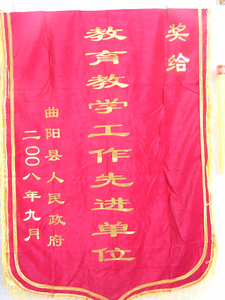 奖给
教育教学工作先进单位
曲阳县人民政府
二〇〇八年九月